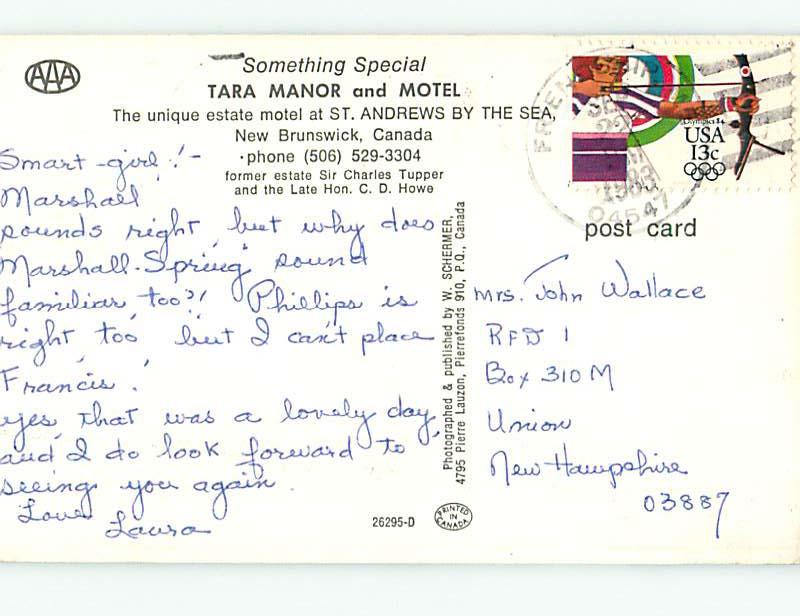 AAA
Something Special
TARA MANOR and MOTEL
The unique estate motel at ST. ANDREWS BY THE SEA,
New Brunswick, Canada
phone (506) 529-3304
former estate Sir Charles Tupper
and the Late Hon. C. D. Howe
Smart girl! -
Marshall
sounds right, but why does
Marshall Spring sound
familiar too?! Phillips is
right too, but I can't place
Francis.
Yes, that was a lovely day,
and I do look forward to
seeing you again.
Love
Laura
26295-D
PRINTED IN CANADA
Photographed & published by W. SCHERMER,
4795 Pierre Lauzon, Pierrefonds 910, P.Q., Canada
Olympics 84
USA
13c
1983
04547
post card
Mrs. John Wallace
RFD 1
Box 310 M
Union
New Hampshire
03887